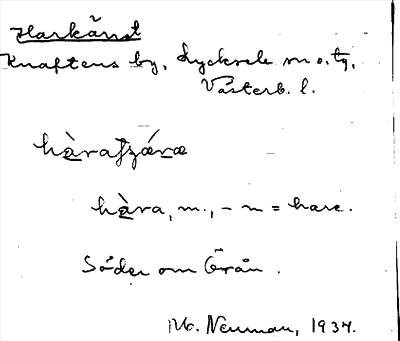 Harkänst
Knaftens by, Lycksele sn o. tg,
Västerb. l.
hära, m., - n = hare.
Söder om Örån.
M. Neuman, 1934.